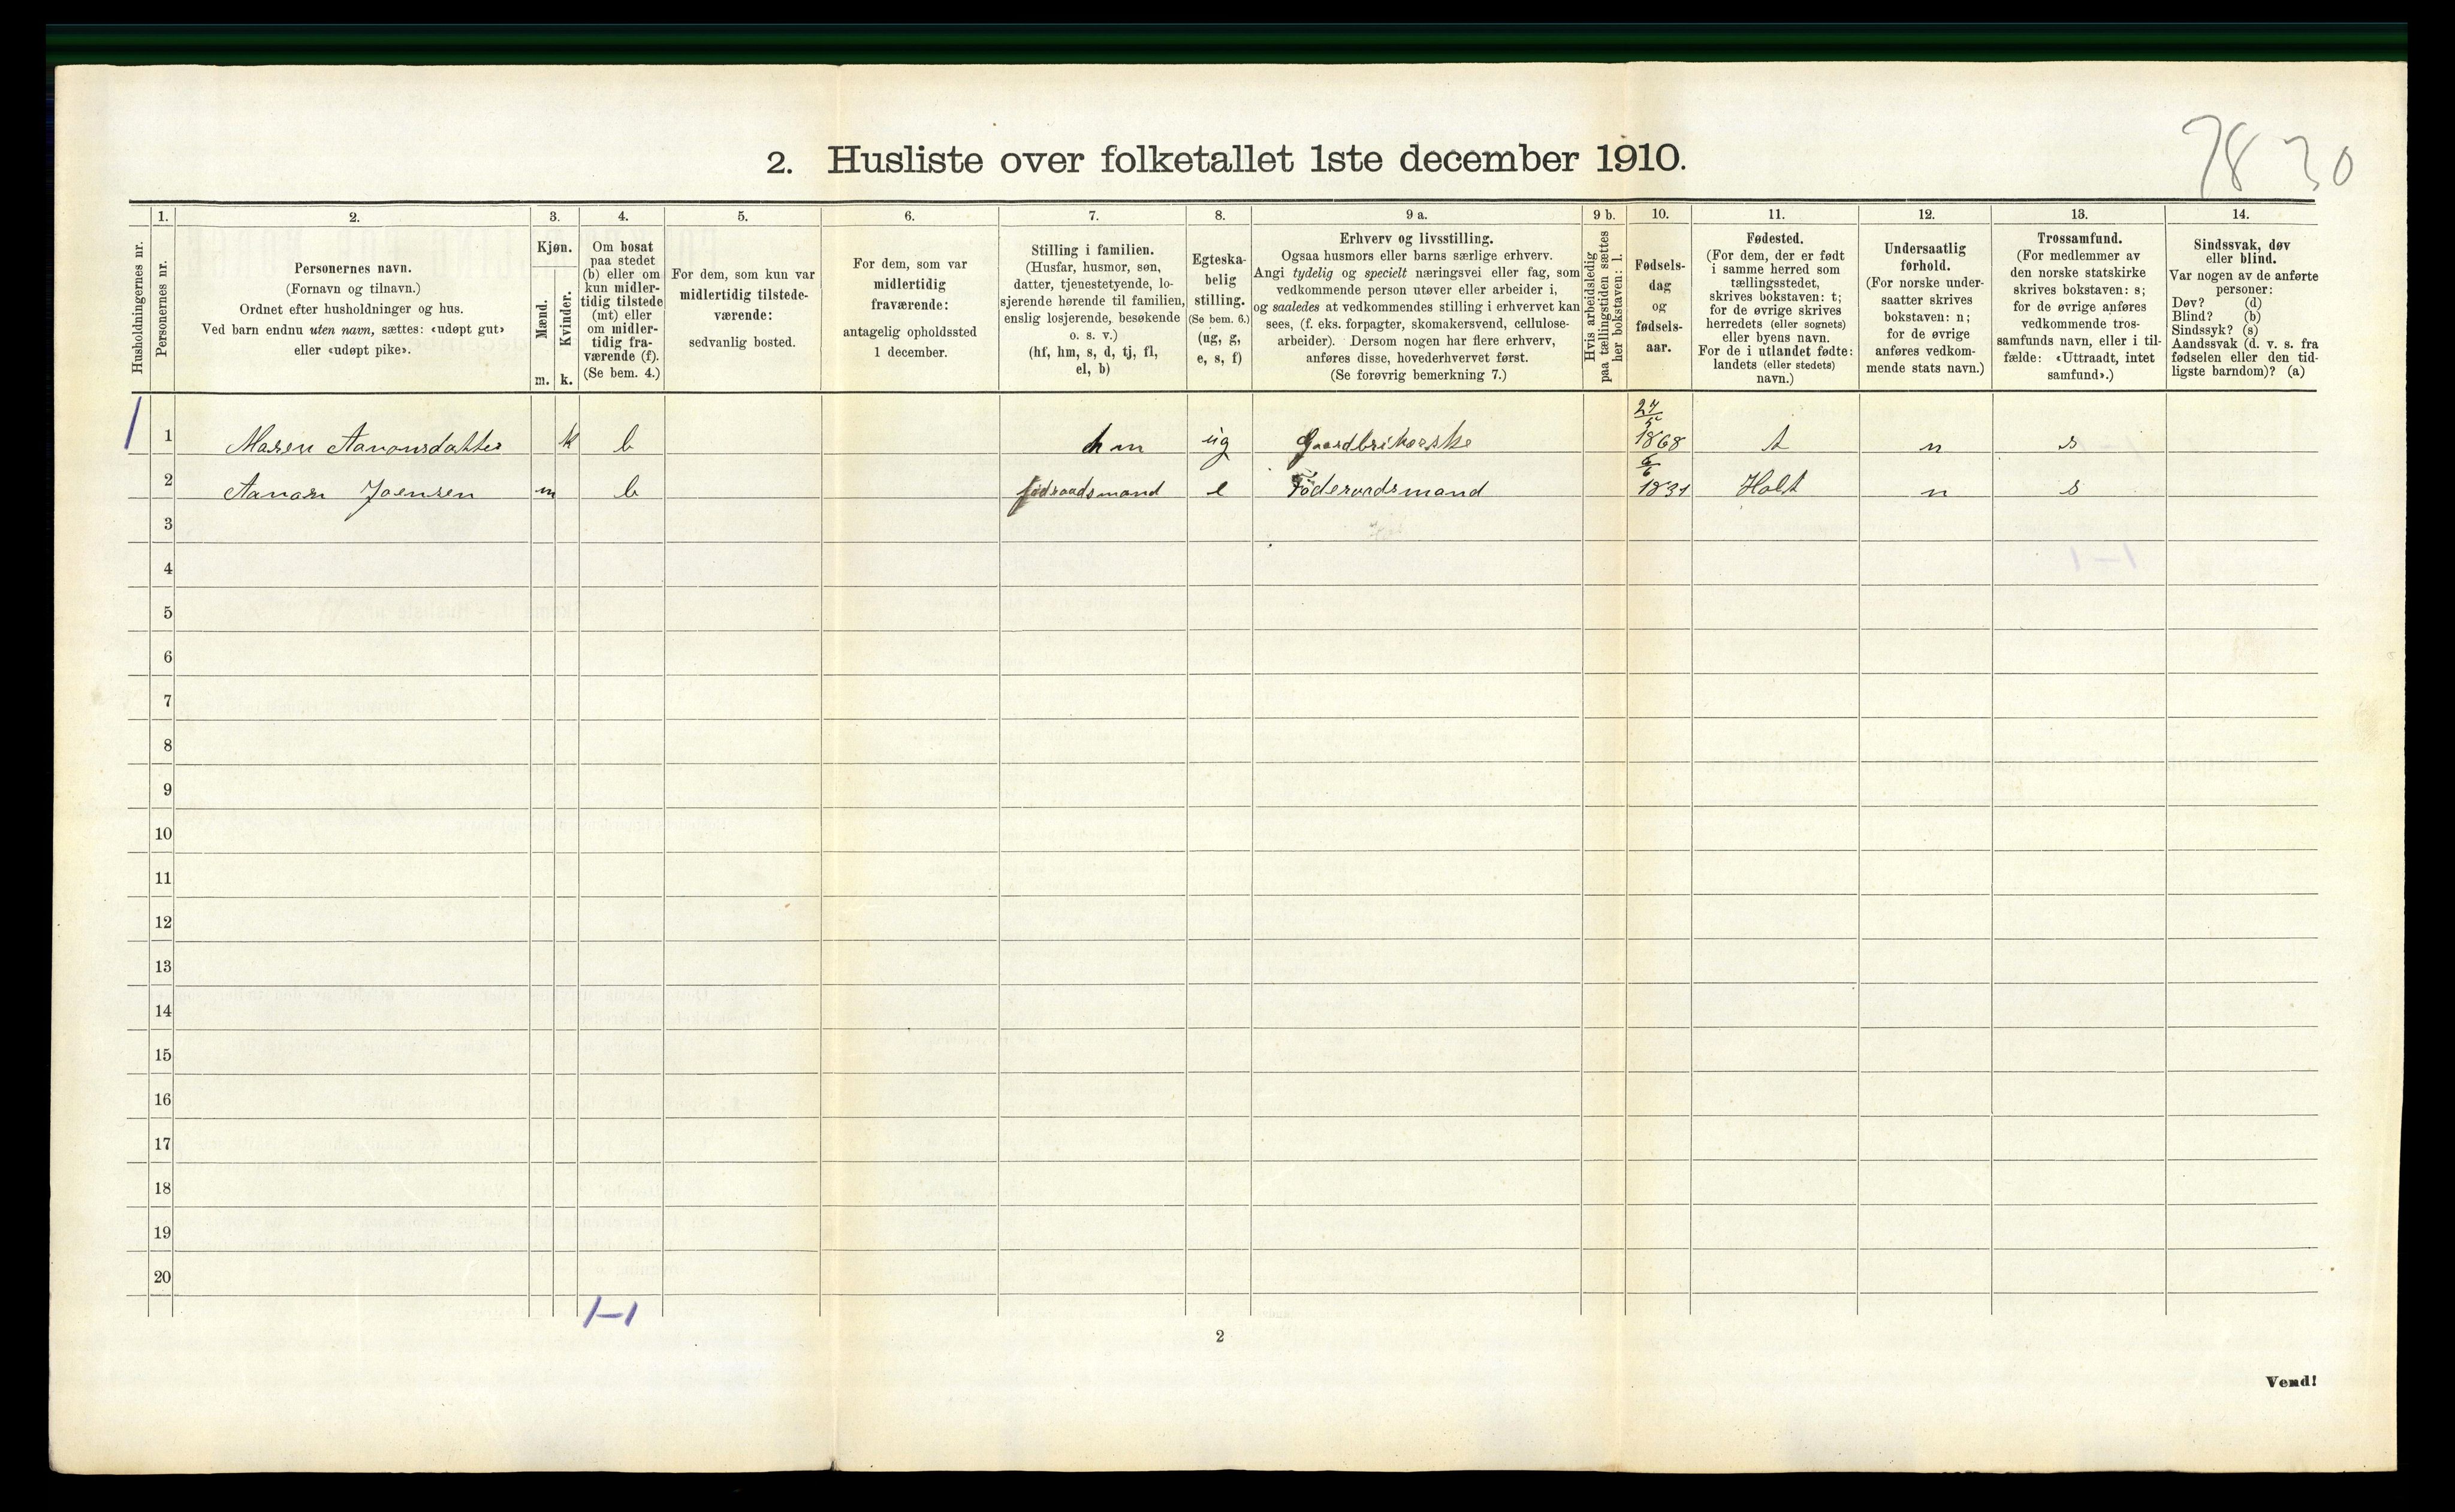 7830
2. Husliste over folketallet 1ste december 1910.
Husholdningernes nr.
1.
Personernes nr.
2.
Personernes navn.
(Fornavn og tilnavn.)
Ordnet efter husholdninger og hus.
Ved barn endnu uten navn, sættes: «udøpt gut»
eller «udøpt pike».
3.
Kjøn.
Mænd.
Kvinder.
m. k.
4.
Om bosat
paa stedet
(b) eller om
kun midler-
tidig tilstede
(mt) eller
om midler-
tidig fra-
værende (f).
(Se bem. 4.)
5.
For dem, som kun var
midlertidig tilstede-
værende:
sedvanlig bosted.
6.
For dem, som var
midlertidig
fraværende:
antagelig opholdssted
1 december.
7.
Stilling i familien.
(Husfar, husmor, søn,
datter, tjenestetyende, lo-
sjerende hørende til familien,
enslig losjerende, besøkende
o. s. v.)
(hf, hm, s, d, tj, fl,
el, b)
8.
Egteska-
belig
stilling.
(Se bem. 6.)
(ug, g,
e, s, f)
9 a.
Erhverv og livsstilling.
Ogsaa husmors eller barns særlige erhverv.
Angi tydelig og specielt næringsvei eller fag, som
vedkommende person utøver eller arbeider i,
og saaledes at vedkommendes stilling i erhvervet kan
sees, (f. eks. forpagter, skomakersvend, cellulose-
arbeider). Dersom nogen har flere erhverv,
anføres disse, hovederhvervet først.
(Se forøvrig bemerkning 7.)
9 b.
Hvis arbeidsledig
paa tællingstiden sættes
her bokstaven: l.
10.
Fødsels-
dag
og
fødsels-
aar.
11.
Fødested.
(For dem, der er født
i samme herred som
tællingsstedet,
skrives bokstaven: t;
for de øvrige skrives
herredets (eller sognets)
eller byens navn.
For de i utlandet fødte:
landets (eller stedets)
navn.)
12.
Undersaatlig
forhold.
(For norske under-
saatter skrives
bokstaven: n;
for de øvrige
anføres vedkom-
mende stats navn.)
13.
Trossamfund.
(For medlemmer av
den norske statskirke
skrives bokstaven: s;
for de øvrige anføres
vedkommende tros-
samfunds navn, eller i til-
fælde: «Uttraadt, intet
samfund».)
14.
Sindssvak, døv
eller blind.
Var nogen av de anførte
personer:
Døv? (d)
Blind? (b)
Sindssyk? (s)
Aandssvak (d. v. s. fra
fødselen eller den tid-
ligste barndom)? (a)
1 1 Maren Aanonsdatter k b hm ug Gaardbrukerske 27/5 1868 t n s
2 Aanon Joensen m b føderaadsmand e Føderaadsmand 6/6 1831 Holt n s
3
4
5
6
7
8
9
10
11
12
13
14
15
16
17
18
19
20
1-1
2
Vend!